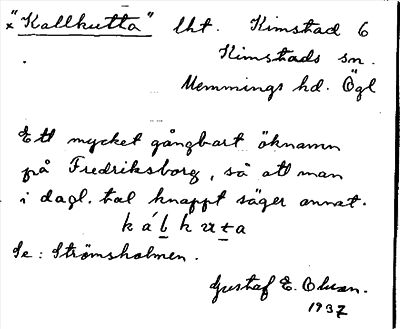 × "Kallkutta" lht. Kimstad 6
Kimstads sn.
Memmings hd. Ögl
Ett mycket gångbart öknamn
på Fredriksborg, så att man
i dagl. tal knappt säger annat.
k á l k u t a
Se: Strömsholmen.
Gustaf E. Olsson.
1937